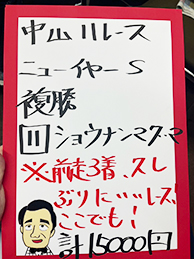 中山11レース
ニューイヤーS
複勝
11 ショウナンマグマ
※前走3着、スレ
ぶりに…レース!
ここでも!
計15000円